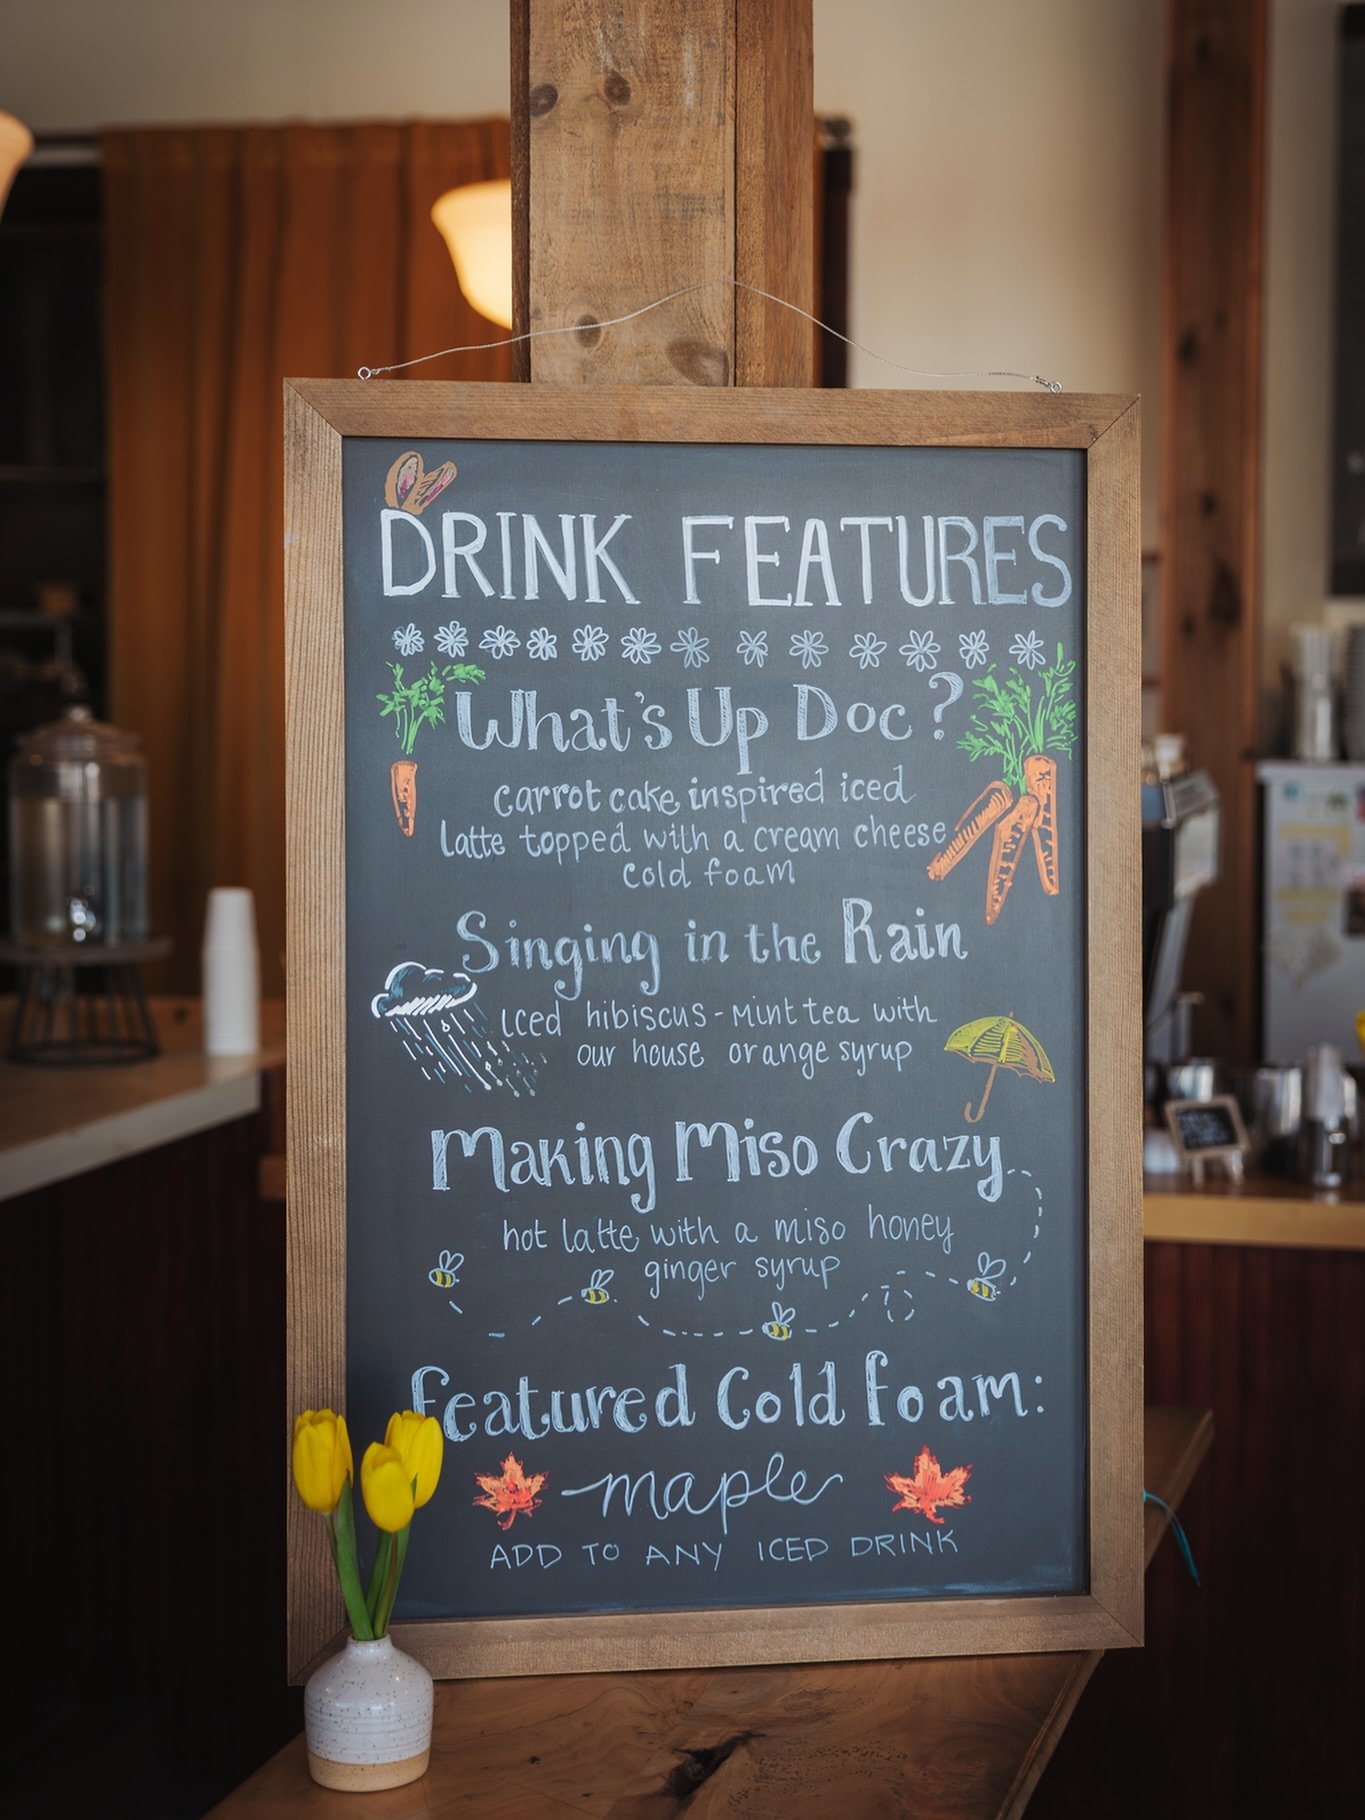 DRINK FEATURES
What's Up Doc?
carrot cake inspired iced
Latte topped with a cream cheese
cold foam
Singing in the Rain
iced hibiscus-mint tea with
our house orange syrup
Making Miso Crazy
hot latte with a miso honey
ginger syrup
Featured Cold Foam:
maple
ADD TO ANY ICED DRINK